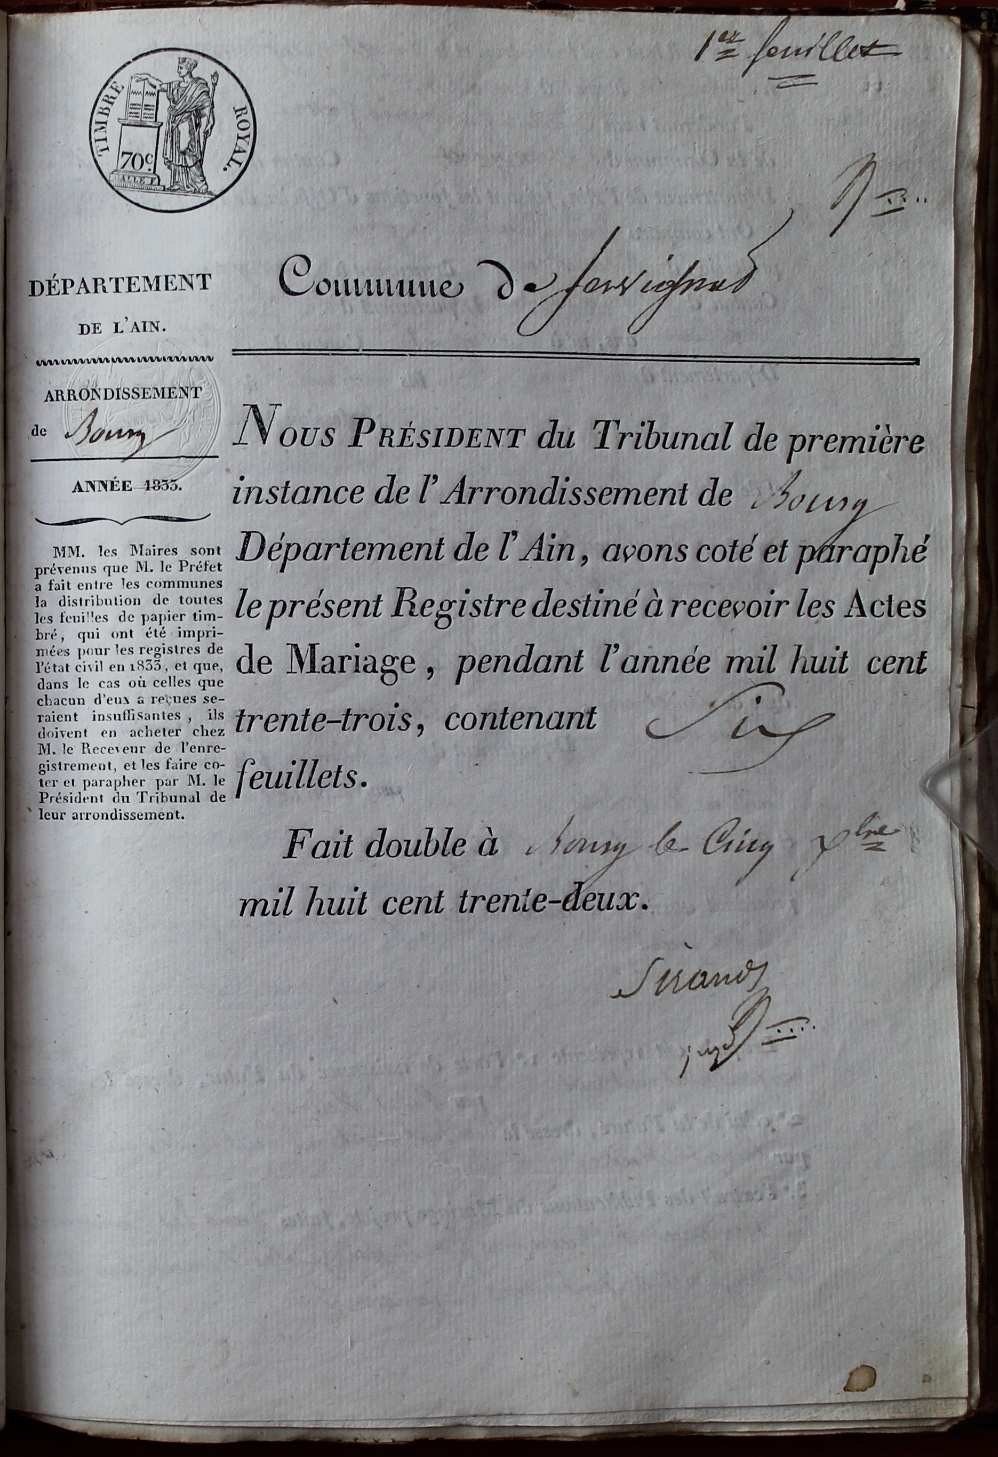 1er feuillet
TIMBRE ROYAL.
70c
Commune de Servignat
DÉPARTEMENT
DE L'AIN.
ARRONDISSEMENT
de Bourg
ANNÉE 1833.
MM. les Maires sont
prévenus que M. le Préfet
a fait entre les communes
la distribution de toutes
les feuilles de papier tim-
bré, qui ont été impri-
mées pour les registres de
l'état civil en 1833, et que,
dans le cas où celles que
chacun d'eux a reçues se-
raient insuffisantes, ils
doivent en acheter chez
M. le Receveur de l'enre-
gistrement, et les faire co-
ter et parapher par M. le
Président du Tribunal de
leur arrondissement.
NOUS PRÉSIDENT du Tribunal de première
instance de l'Arrondissement de Bourg
Département de l'Ain, avons coté et paraphé
le présent Registre destiné à recevoir les Actes
de Mariage, pendant l'année mil huit cent
trente-trois, contenant Six
feuillets.
Fait double à Bourg le Cinq Xbre
mil huit cent trente-deux.
Sirand